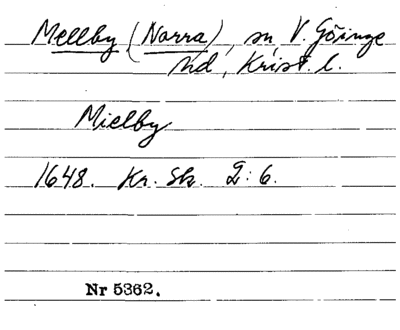 Mellby (Norra), sn V. Göinge
hd, Krist. l.
Mielby
1648. Kr. Sk. 2:6.
Nr 5362.